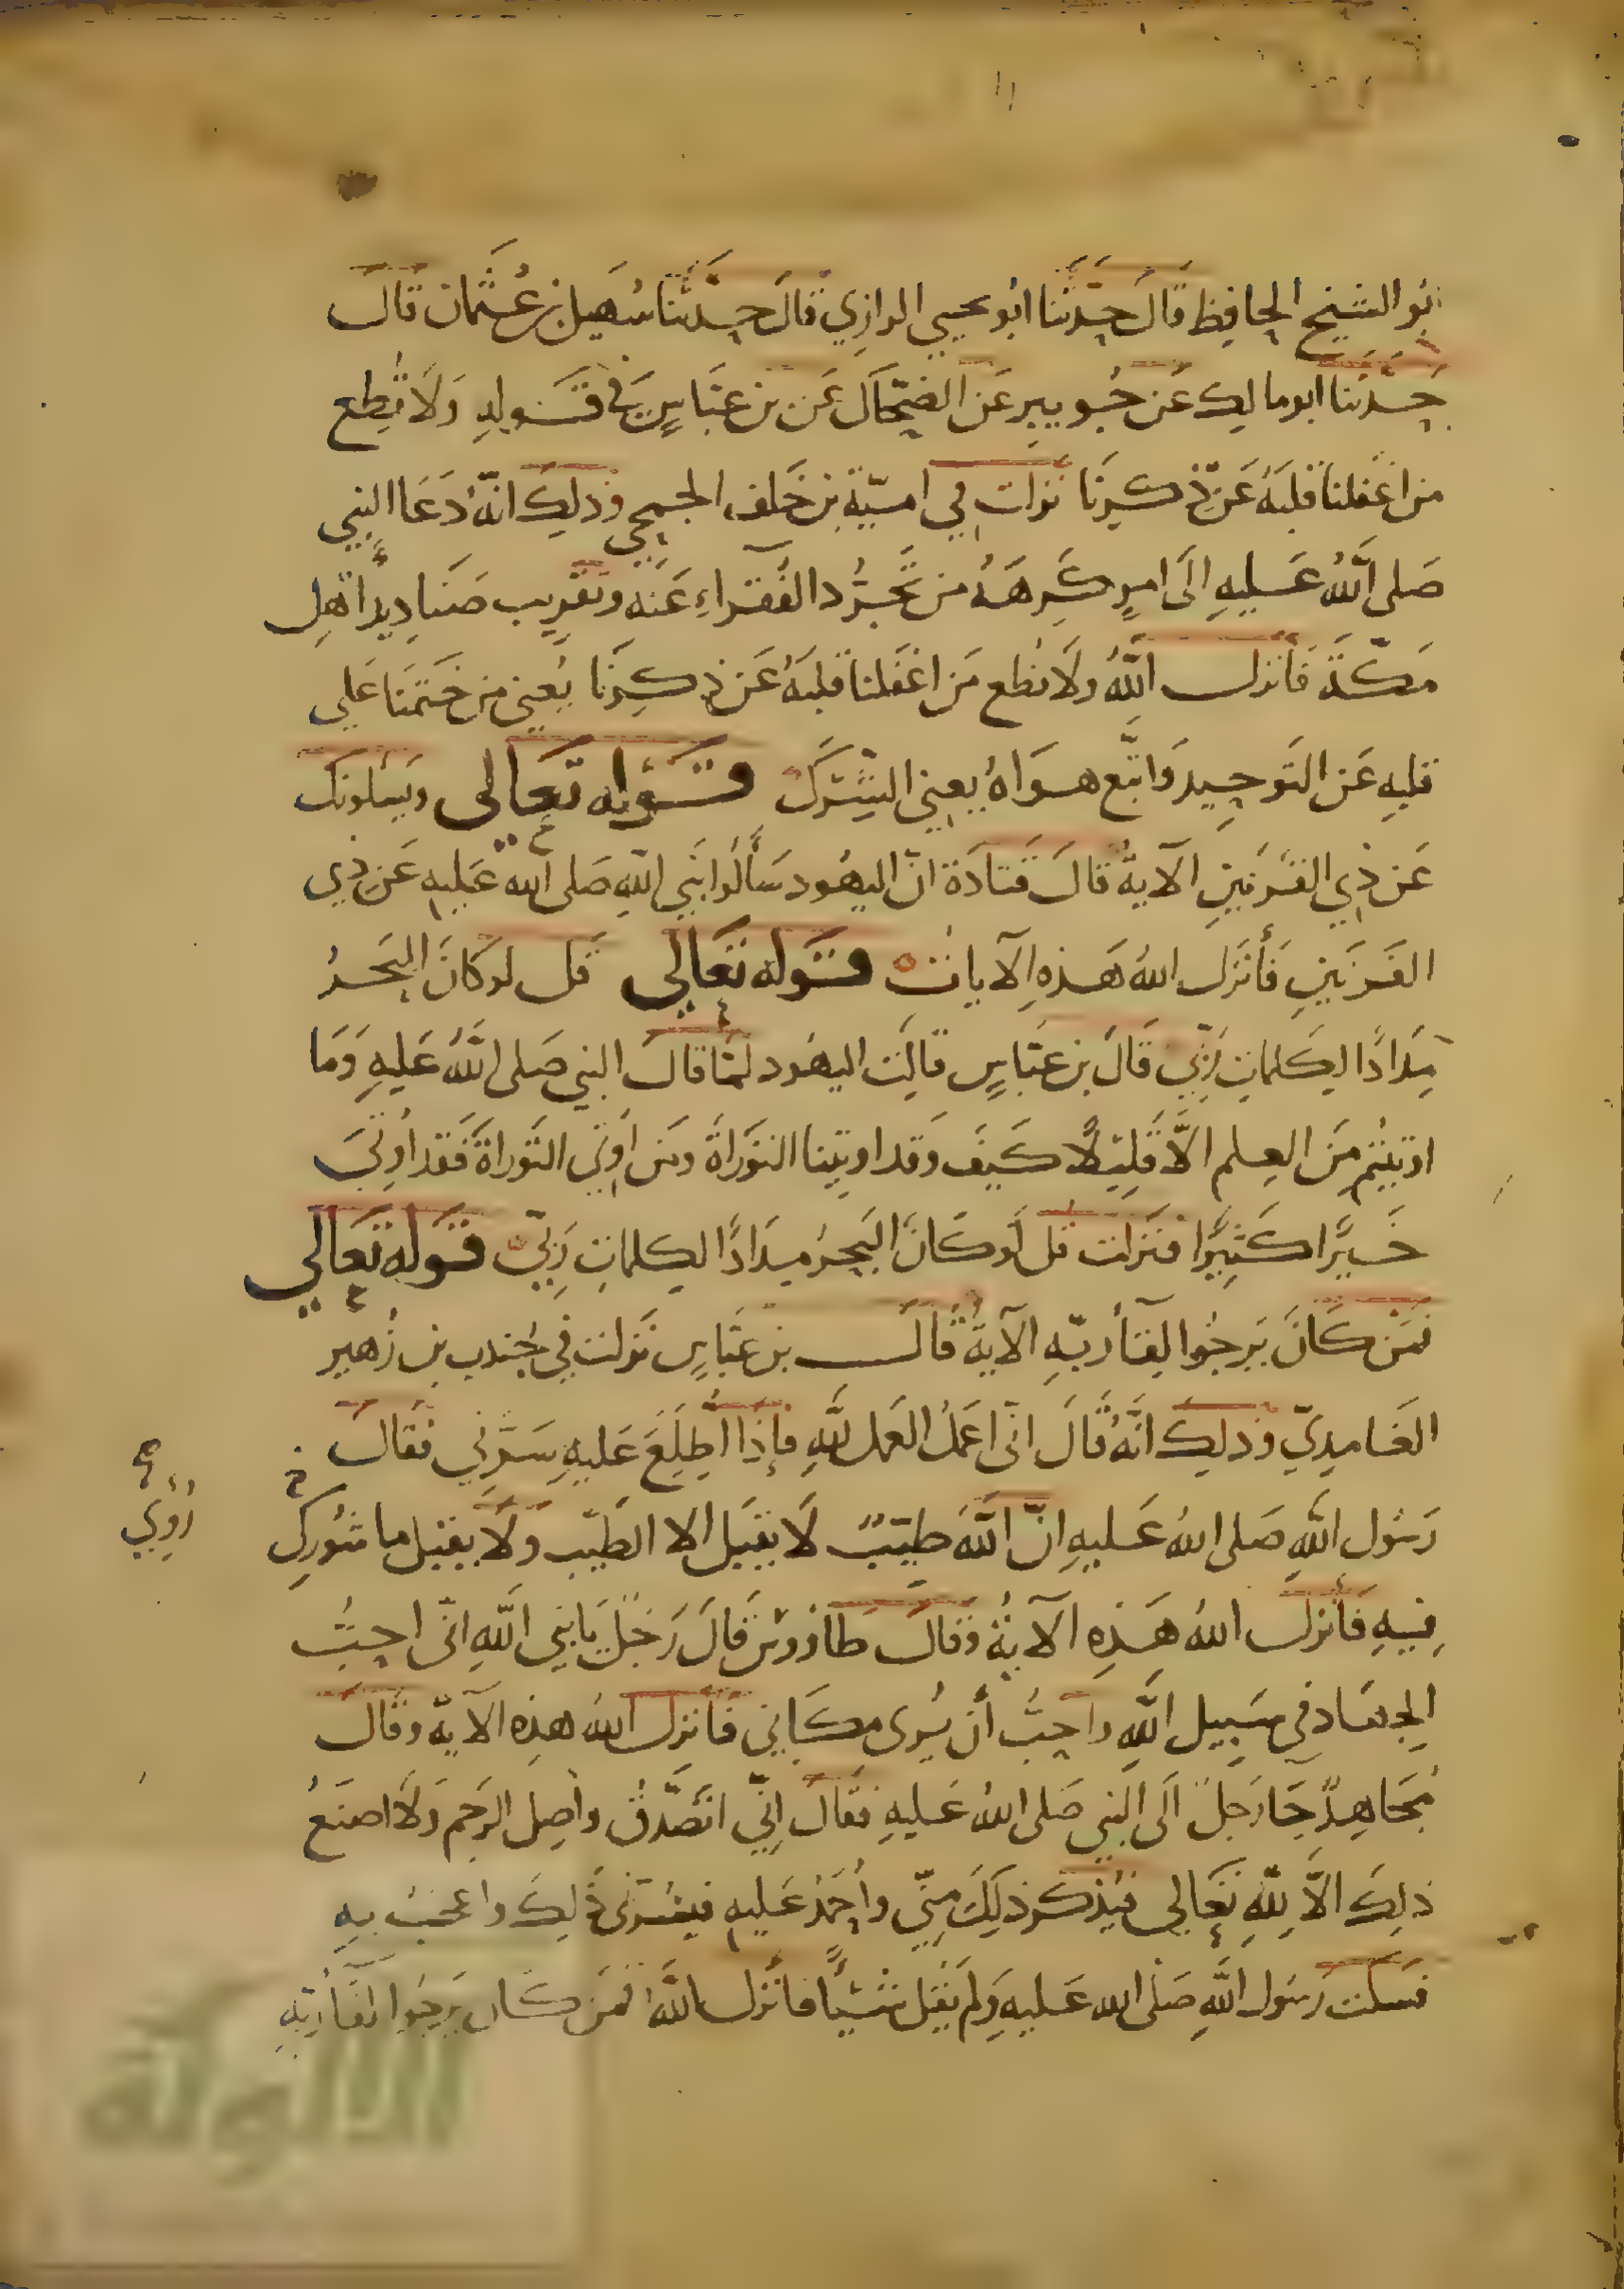 ابُو الشيخ الحافِظ قَالَ حَدَّثَنا ابُو يحيى الرازِي قَالَ حَدَّثنا سُهَيل بن عُثمان قالَ
حَدَّثَنا ابو مالِك عَن جُويبِرِ عَن الضحَّاكِ عَن بن عبَّاسٍ في قَولِهِ وَلَا تُطِع
من اغفلنا قلبَهُ عَن ذكرِنَا نزلت في اميّة بن خَلف الجمحِي وذلِك انّهُ دَعَا النبي
صَلى اللَّهُ عَليهِ الَى امرٍ كَرِهَهُ من تجَرُّد الفُقراءِ عَنه وتقرِيب صَنادِيد اهلِ
مَكَّةَ فَانزل اللَّهُ ولَا تطع مَن اغفَلنا قلبَهُ عَن ذكرِنَا يُعني من خَتَمنَا عَلي
قلبِهِ عَن التَوحِيد وَاتَّبع هوَاهُ يعني الشِّركَ قَوله تعَالى ويَسلونك
عَن ذِي القَرنَينِ الآيةُ قالَ قَتادَة انّ اليهُود سَأَلُوا نبي اللهِ صَلى الله عَليهِ عَن ذِي
القَرنَينِ فَأَنزَل اللهُ هَذِهِ الآياتِ قَوله تعَالي قل لو كانَ البَحرُ
مِدَادًا لِكَلماتِ رَبّي قَالَ بن عبَّاسٍ قالَت اليهُود لمَّا قالَ النبي صَلى اللَّهُ عَليهِ وَمَا
اوتيتُم مِنَ العِلم الاَّ قَلِيلاً كَيفَ وَقد اوتِينا التوَراةَ ومَن اُوتي التوراةَ فَقد اُوتيَ
خَيرًا كَثِيرًا فنَزلت قل لَو كانَ البَحرُ مِدَادًا لِكلماتِ رَبّي قَوله تعَالي
فمَن كَانَ يَرجُوا لقآ ربّهِ الآيةُ قالَ بن عبَّاسٍ نَزلت في جُندب بن زُهير
الغَامِدِيّ وَذلِكَ انَّهُ قَالَ انّي اعمَلُ العَمل للَّهِ فإذَا اُطلِعَ عَليهِ سَرَّني فقالَ
رَسُول اللَّهِ صَلى اللهُ عَليهِ انّ اللَّهَ طيّبٌ لَا يقبَل الا الطَيّب ولَا يقبَل ما شُورِك
رُوي
فِيهِ فَأنزلَ اللهُ هَذِهِ الآيةُ وَقالَ طَاوُوس قَالَ رَجُلٌ يَا نبي اللَّهِ انّي احِبُّ
الجهَاد في سَبِيل اللَّهِ واحِبُّ أن يُرى مكَانِي فَأنزل اللهُ هذِه الآيةَ وَقالَ
مُجَاهِدٌ جَا رَجلٌ الَى النبي صَلى اللهُ عَليهِ فقَالَ اِنِّي اتصَدَّقُ واصِل الرحِم وَلاَ اصنَعُ
ذلِكَ الاَّ لِلَّهِ تعَالي فيُذكَر ذلِكَ مِنِّي وأحمَدُ عَليهِ فيَسُرّني ذَلِكَ واعجَبُ بهِ
فَسكتَ رَسُول اللَّهِ صَلَى الله عَليهِ وَلَم يَقُل شَيئًا فانزل اللَّهُ فمَن كانَ يَرجُوا لقآ رَبّهِ
الألوكة